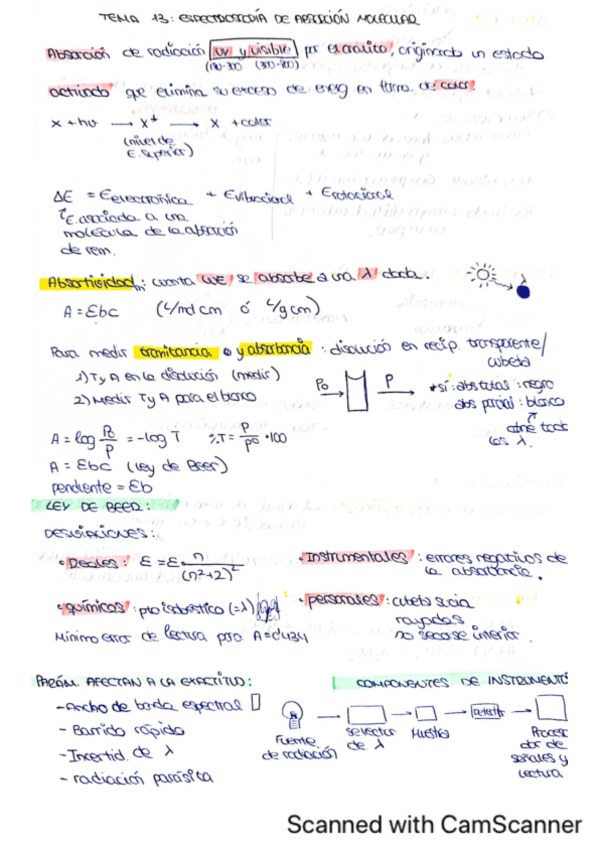 TEMA 13: ESPECTROSCOPÍA DE ABSORCIÓN MOLECULAR
Absorción de radiación uv y visible por es analito, originando un estado
(190-300) (300-800)
activado que elimina su exceso de energ en forma de calor
x + hν → x* → x + calor
(nivel de
E. superior)
ΔE = Eelectrónica + Evibracional + Erotacional
E. asociada a una
molécula de la absorción
de rem.
Absortividad: cuanta luz se absorbe a una λ dada.
A = Ebc (L/mol cm ó L/g cm)
λ
Para medir transmitancia o y absorbancia: disolución en recip. transparente/
cubeta
1) T y A en la disolución (medir)
2) Medir T y A para el blanco
Po P
*si: abs total: negro
abs parcial: blanco
todas
las λ.
A = log Po/P = -log T %T = P/Po · 100
A = Ebc (Ley de Beer)
pendiente = Eb
LEY DE BEER:
DESVIACIONES:
· Reales: E = E · n/(n²+2)²
· Instrumentales: errores negativos de
la absorbancia.
· químicas: pto isosbéstico (=λ)
· personales: cubeta sucia
rayadas
no secarse interior.
Mínimo error de lectura para A=0'434
PARÁM. AFECTAN A LA EXACTITUD:
- Ancho de banda espectral
- Barrido rápido
- Incertid. de λ
- radiación parásita
COMPONENTES DE INSTRUMENTO
Fuente
de radiación
selector
de λ
Muestra
Detector
Procesa
dor de
señales y
lectura
Scanned with CamScanner